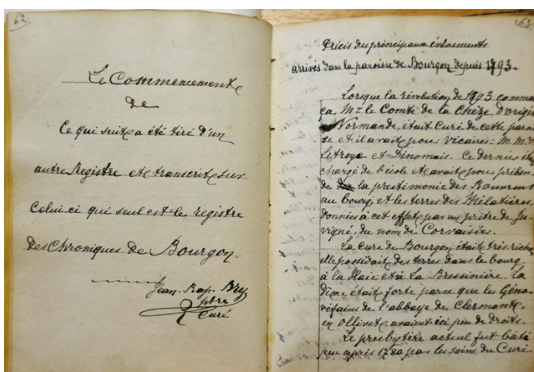 62
Le Commencement
de
Ce qui suit a été tiré d'un
autre Registre et transcrit sur
Celui ci qui seul est le registre
des Chroniques de Bourgon.
Jean. Bap.
ptre
Curé
63
Précis des principaux évènements
arrivés dans la paroisse de Bourgon depuis 1793.
Lorsque la révolution de 1793 commen
ça, Mr le Comte de la Chèze, d'origi
Normande, était Curé de cette parois
se et il avait pour vicaires: M. M.
Letroye et Dinomais. Ce dernier ét
chargé de l'école et avait pour
de la prestimonie des
au bourg, et les terres des Milatières,
données à cet effet par un prêtre de Ju-
vigné, du nom de Corvaisier.
La cure de Bourgon était très riche,
elle possédait des terres dans le bourg
à la Haie et à la Bressinière. La
dîme était forte parce que les Géno-
vefains de l'abbaye de Clermont,
en Ollivet, avaient ici peu de droits.
Le presbytère actuel fut bâti
peu après 1780 par les soins du Curé